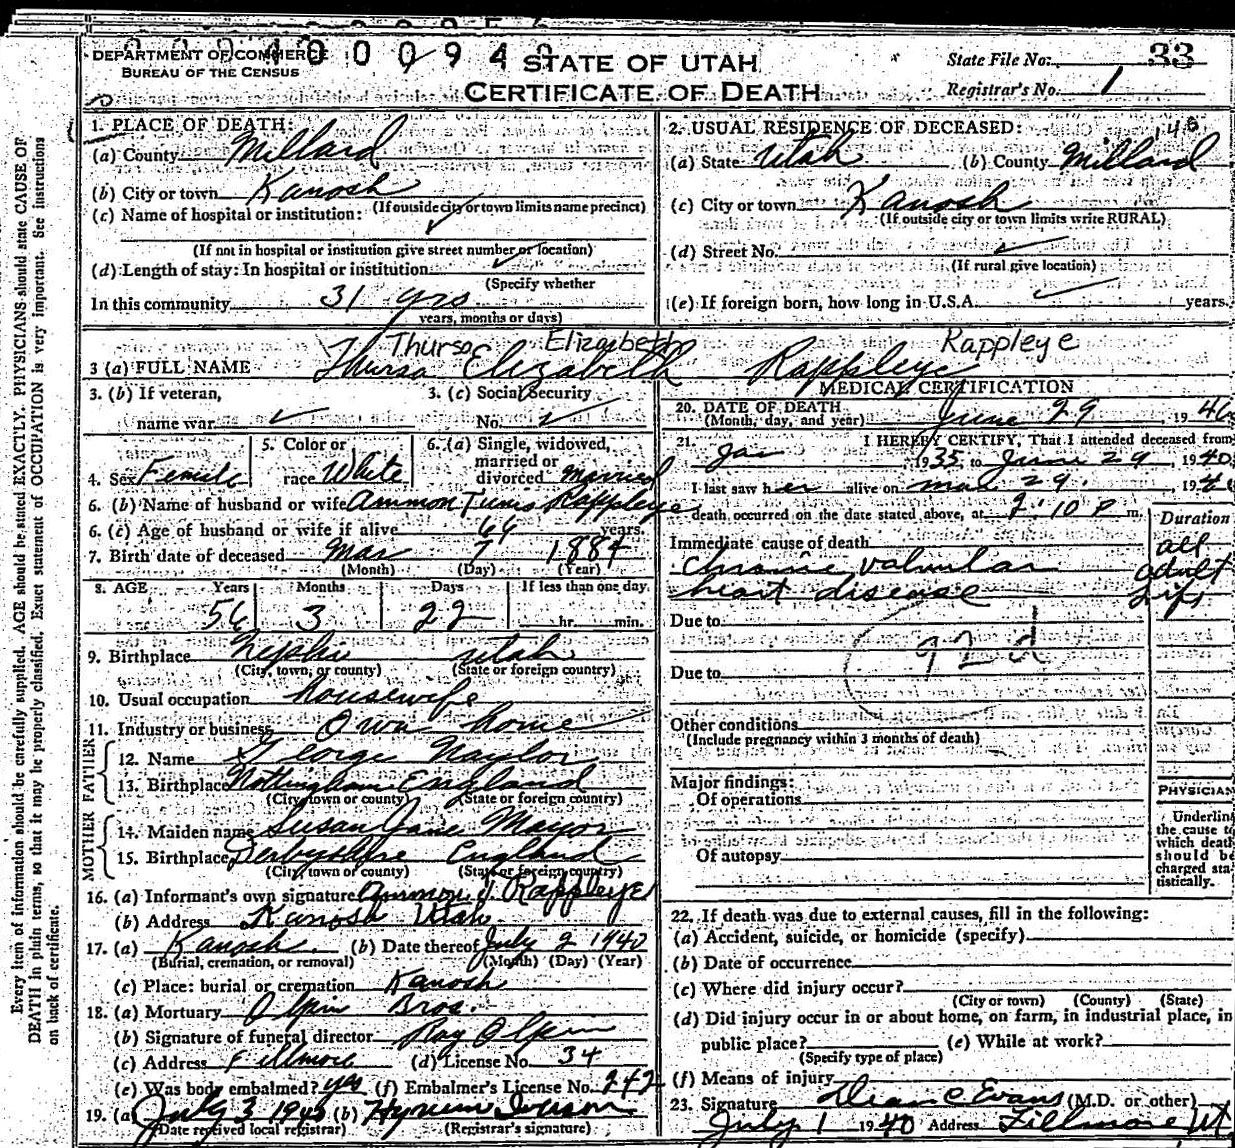 DEPARTMENT OF COMMERCE
BUREAU OF THE CENSUS
0 0 9 4
STATE OF UTAH
CERTIFICATE OF DEATH
State File No. 33
Registrar's No. 1
1. PLACE OF DEATH:
(a) County Millard
(b) City or town Kanosh
(If outside city or town limits name precinct)
(c) Name of hospital or institution:
(If not in hospital or institution give street number or location)
(d) Length of stay: In hospital or institution
(Specify whether
In this community 31 yrs
years, months or days)
2. USUAL RESIDENCE OF DECEASED:
(a) State Utah (b) County Millard
(c) City or town Kanosh
(If outside city or town limits write RURAL)
(d) Street No.
(If rural give location)
(e) If foreign born, how long in U.S.A. years.
Thursa Elizabeth Rappleye
3 (a) FULL NAME Thursa Elizabeth Rappleye
3. (b) If veteran,
name war
3. (c) Social Security
No.
4. Sex Female
5. Color or
race White
6. (a) Single, widowed,
married or
divorced married
6. (b) Name of husband or wife Ammon Tunis Rappleye
6. (c) Age of husband or wife if alive 64 years.
7. Birth date of deceased Mar 7 1884
(Month) (Day) (Year)
8. AGE Years Months Days If less than one day
56 3 22 hr. min.
9. Birthplace Nephi Utah
(City, town, or county) (State or foreign country)
10. Usual occupation housewife
11. Industry or business Own home
FATHER
12. Name George Naylor
13. Birthplace Nottingham England
(City, town or county) (State or foreign country)
MOTHER
14. Maiden name Susan Jane Mayor
15. Birthplace Derbyshire England
(City, town or county) (State or foreign country)
16. (a) Informant's own signature Ammon T. Rappleye
(b) Address Kanosh Utah
17. (a) Kanosh (b) Date thereof July 2 1940
(Burial, cremation, or removal) (Month) (Day) (Year)
(c) Place: burial or cremation Kanosh
18. (a) Mortuary Olpin Bros.
(b) Signature of funeral director Ray Olpin
(c) Address Fillmore (d) License No. 34
(e) Was body embalmed? yes (f) Embalmer's License No. 242
19. (a) July 3 1940 (b) Hyrum Iverson
(Date received local registrar) (Registrar's signature)
MEDICAL CERTIFICATION
20. DATE OF DEATH June 29, 1940
(Month, day, and year)
21. I HEREBY CERTIFY, That I attended deceased from
Jan, 1935, to June 29, 1940
I last saw her alive on 29, 1940
death occurred on the date stated above, at 2:10 P m.
Immediate cause of death
Duration
chronic valvular
heart disease
all
adult
life
Due to
92d
Due to
Other conditions
(Include pregnancy within 3 months of death)
Major findings:
Of operations
Of autopsy
PHYSICIAN
Underline
the cause to
which death
should be
charged sta-
tistically.
22. If death was due to external causes, fill in the following:
(a) Accident, suicide, or homicide (specify)
(b) Date of occurrence
(c) Where did injury occur?
(City or town) (County) (State)
(d) Did injury occur in or about home, on farm, in industrial place, in
public place? (e) While at work?
(Specify type of place)
(f) Means of injury
23. Signature Dean C Evans (M.D. or other)
July 1 1940 Address Fillmore Ut
Every item of information should be carefully supplied. AGE should be stated EXACTLY. PHYSICIANS should state CAUSE OF
DEATH in plain terms, so that it may be properly classified. Exact statement of OCCUPATION is very important. See instructions
on back of certificate.